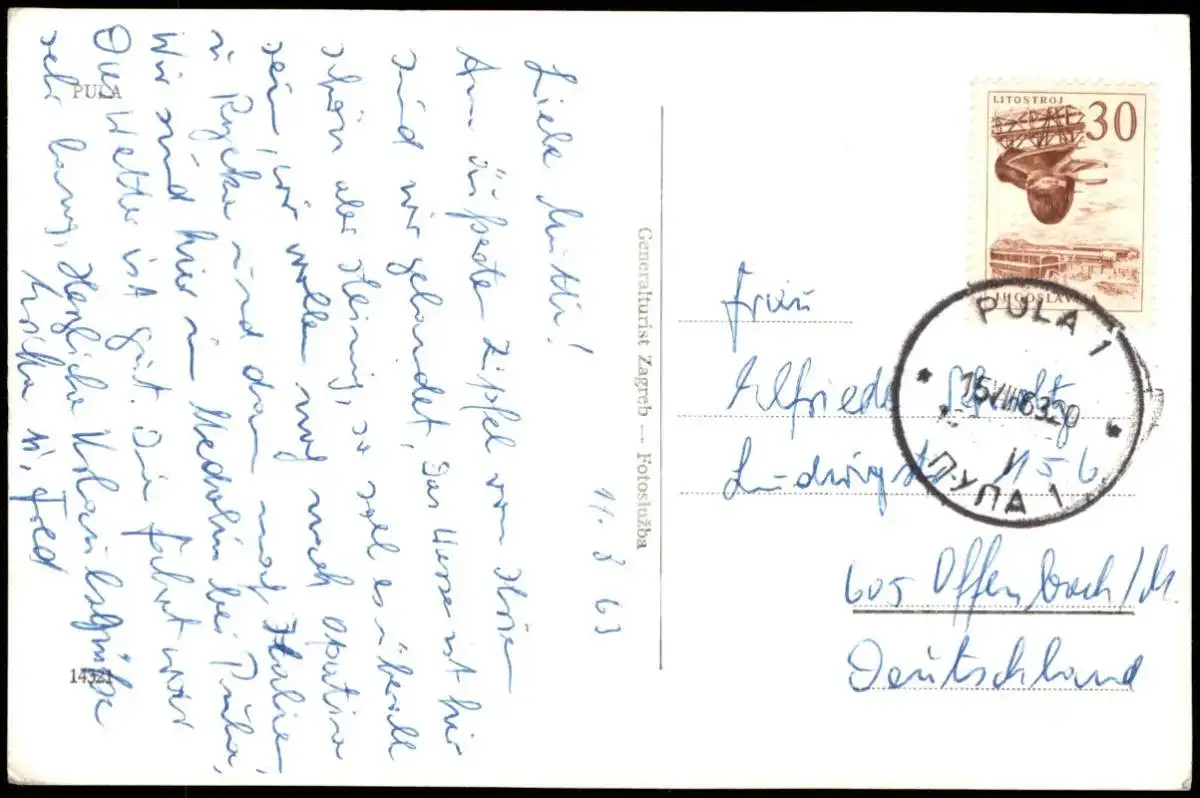 PULA
11. 8 63
Liebe Mutti!
Am äußersten Zipfel von Istrien
sind wir gelandet. Das Wasser ist hier
schön aber steinig, so soll es überall
sein, wir wollen noch nach Opatia
u Ryeka und dan nach Italien,
Wir sind hier in Medolin bei Pula,
Das Wetter ist gut. Die Fahrt war
sehr lang, Herzliche Urlaubsgrüße
u. Fred
14321
Generalturist Zagreb — Fotoslužba
LITOSTROJ
30
JUGOSLAVIJA
PULA 1
15 VIII 63 20
ПУЛА 1
Frau
Alfriede
Ludwigstr. 156
605 Offenbach/M.
Deutschland